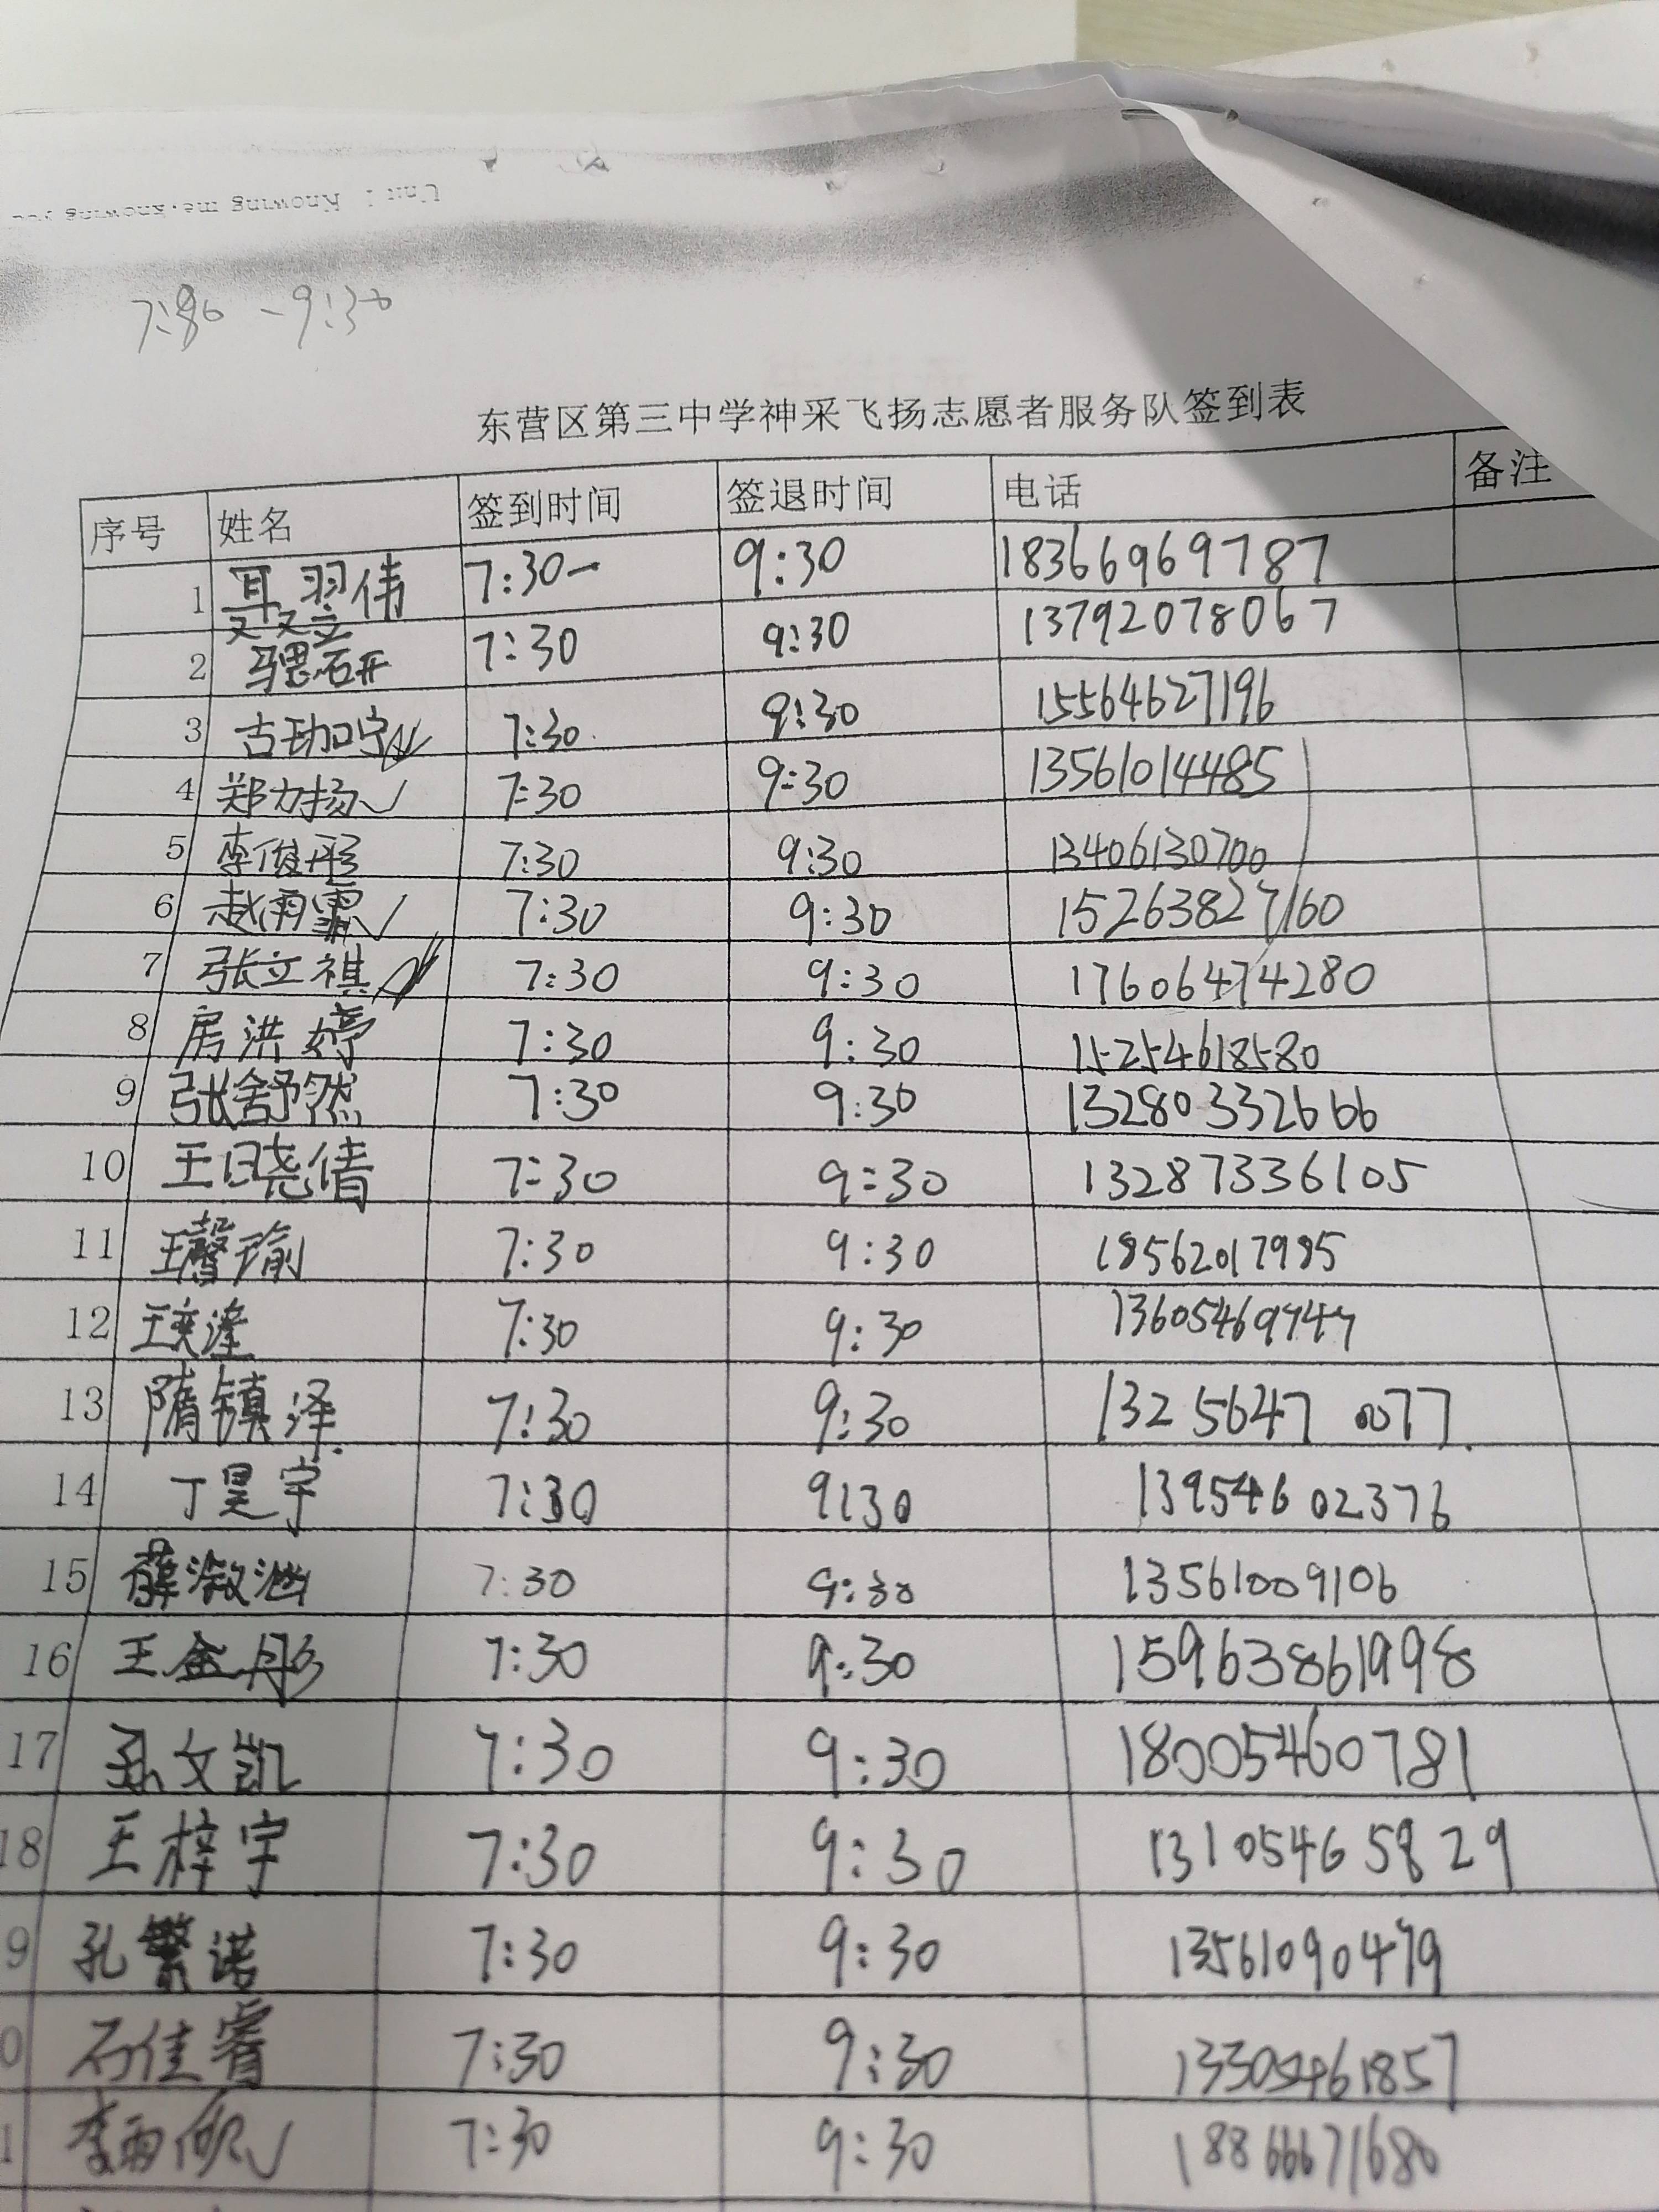 Unit 1 Knowing me, knowing you
7:30 - 9:30
东营区第三中学神采飞扬志愿者服务队签到表
序号 姓名 签到时间 签退时间 电话 备注
1 聂翌伟 7:30- 9:30 18366969787
2 骢研 7:30 9:30 13792078067
3 古珈宁 7:30 9:30 15564627196
4 郑力扬 7:30 9:30 13561014485
5 李俊彤 7:30 9:30 13406130700
6 赵雨霏 7:30 9:30 15263827160
7 张立祺 7:30 9:30 17606474280
8 房洪婷 7:30 9:30 15254618580
9 张舒然 7:30 9:30 13280332666
10 王晓倩 7:30 9:30 13287336105
11 王馨瑜 7:30 9:30 18562017985
12 王奕 7:30 9:30
13 隋镇泽 7:30 9:30 1325647 0077
14 丁昊宇 7:30 9:30 13954602376
15 薛溆涵 7:30 9:30 13561009106
16 王金彤 7:30 9:30 15963861998
17 孙文凯 7:30 9:30 18005460781
18 王梓宇 7:30 9:30 13105465829
9 孔繁诺 7:30 9:30 13561090479
0 石佳睿 7:30 9:30 13305461857
1 李雨佩 7:30 9:30 18866671680